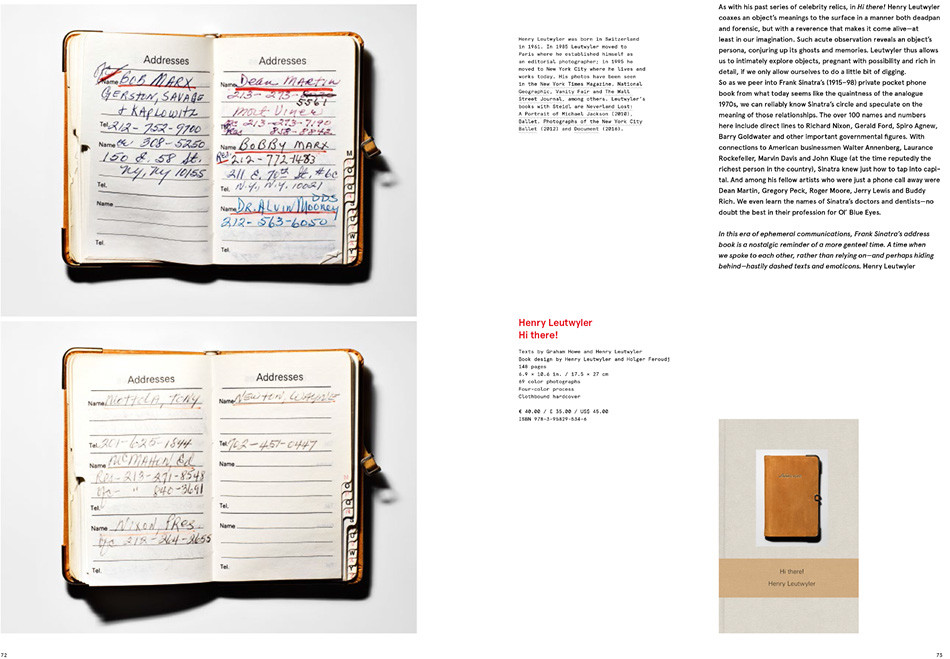 Addresses
Addresses
Name BOB MARX
GERSTON, SAVAGE
& KAPLOWITZ
Tel. 212-752-9700
Name 308-5250
150 E. 58 St.
NY, NY 10155
Tel.
Name
Tel.
Name Dean MARTIN
213-273-
5561
Mort Viner
213-273-7190
Res 858-8842
Name BOBBY MARX
212-772-1483
211 E. 70th St. #6C
Tel. N.Y., N.Y. 10021
DDS
Name DR. ALVIN MOOREY
212-563-6050
Tel.
M
Addresses
Addresses
Name MOTTOLA, TONY
Tel. 201-625-1844
Name McMAHEN, Ed
Res-213-271-8548
ofc- " 840-3691
Tel.
Name NIXON, PRES.
ofc 212-264-2655
Tel.
Name NEWTON, WAYNE
Tel. 702-451-0447
Name
Tel.
Name
Tel.
72
Henry Leutwyler was born in Switzerland
in 1961. In 1985 Leutwyler moved to
Paris where he established himself as
an editorial photographer; in 1995 he
moved to New York City where he lives and
works today. His photos have been seen
in the New York Times Magazine, National
Geographic, Vanity Fair and The Wall
Street Journal, among others. Leutwyler's
books with Steidl are Neverland Lost:
A Portrait of Michael Jackson (2010),
Ballet. Photographs of the New York City
Ballet (2012) and Document (2016).
Henry Leutwyler
Hi there!
Texts by Graham Howe and Henry Leutwyler
Book design by Henry Leutwyler and Holger Feroudj
148 pages
6.9 × 10.6 in. / 17.5 × 27 cm
69 color photographs
Four-color process
Clothbound hardcover
€ 40.00 / £ 35.00 / US$ 45.00
ISBN 978-3-95829-534-6
As with his past series of celebrity relics, in Hi there! Henry Leutwyler
coaxes an object's meanings to the surface in a manner both deadpan
and forensic, but with a reverence that makes it come alive—at
least in our imagination. Such acute observation reveals an object's
persona, conjuring up its ghosts and memories. Leutwyler thus allows
us to intimately explore objects, pregnant with possibility and rich in
detail, if we only allow ourselves to do a little bit of digging.
So as we peer into Frank Sinatra's (1915–98) private pocket phone
book from what today seems like the quaintness of the analogue
1970s, we can reliably know Sinatra's circle and speculate on the
meaning of those relationships. The over 100 names and numbers
here include direct lines to Richard Nixon, Gerald Ford, Spiro Agnew,
Barry Goldwater and other important governmental figures. With
connections to American businessmen Walter Annenberg, Laurance
Rockefeller, Marvin Davis and John Kluge (at the time reputedly the
richest person in the country), Sinatra knew just how to tap into capi-
tal. And among his fellow artists who were just a phone call away were
Dean Martin, Gregory Peck, Roger Moore, Jerry Lewis and Buddy
Rich. We even learn the names of Sinatra's doctors and dentists—no
doubt the best in their profession for Ol' Blue Eyes.
In this era of ephemeral communications, Frank Sinatra's address
book is a nostalgic reminder of a more genteel time. A time when
we spoke to each other, rather than relying on—and perhaps hiding
behind—hastily dashed texts and emoticons. Henry Leutwyler
Hi there!
Henry Leutwyler
73